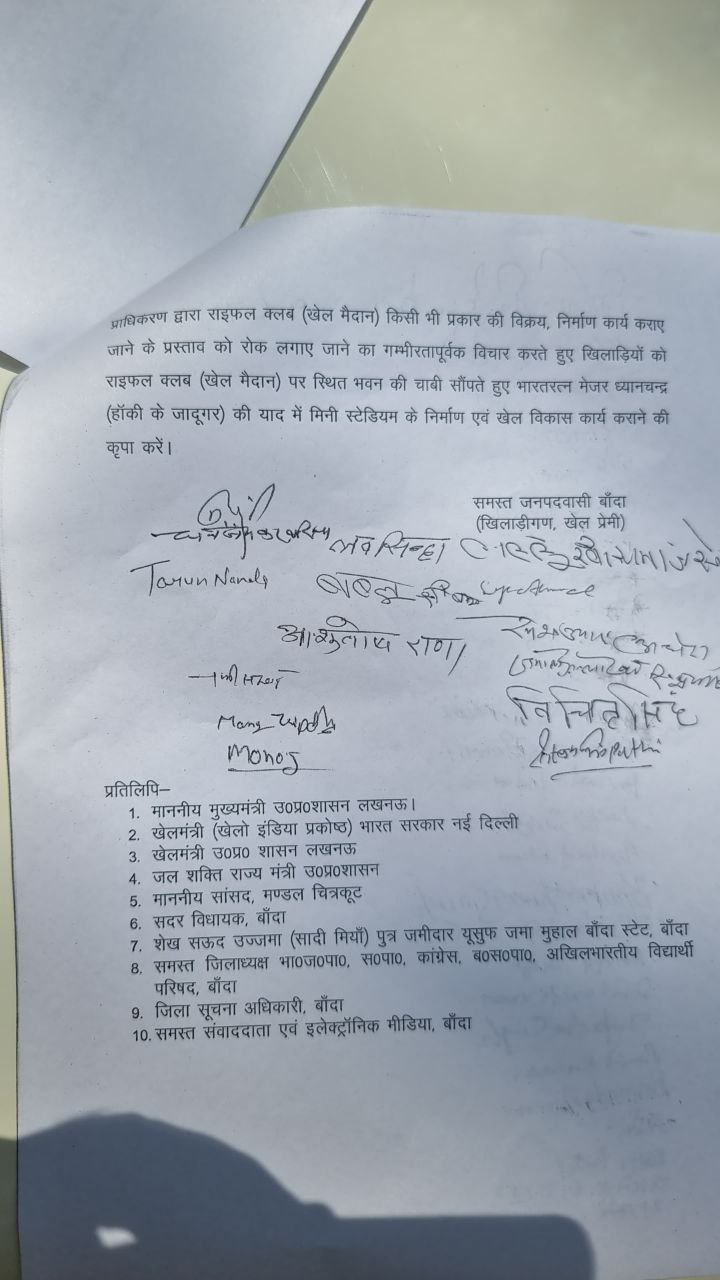 प्राधिकरण द्वारा राइफल क्लब (खेल मैदान) किसी भी प्रकार की विक्रय, निर्माण कार्य कराए
जाने के प्रस्ताव को रोक लगाए जाने का गम्भीरतापूर्वक विचार करते हुए खिलाड़ियों को
राइफल क्लब (खेल मैदान) पर स्थित भवन की चाबी सौंपते हुए भारतरत्न मेजर ध्यानचन्द्र
(हॉकी के जादूगर) की याद में मिनी स्टेडियम के निर्माण एवं खेल विकास कार्य कराने की
कृपा करें।
समस्त जनपदवासी बाँदा
(खिलाड़ीगण, खेल प्रेमी)
लव सिन्हा
Tarun
बबलू
आशुतोष राणा
Manoj
प्रतिलिपि–
1. माननीय मुख्यमंत्री उ०प्र०शासन लखनऊ।
2. खेलमंत्री (खेलो इंडिया प्रकोष्ठ) भारत सरकार नई दिल्ली
3. खेलमंत्री उ०प्र० शासन लखनऊ
4. जल शक्ति राज्य मंत्री उ०प्र०शासन
5. माननीय सांसद, मण्डल चित्रकूट
6. सदर विधायक, बाँदा
7. शेख सऊद उज्जमा (सादी मियाँ) पुत्र जमीदार यूसुफ जमा मुहाल बाँदा स्टेट, बाँदा
8. समस्त जिलाध्यक्ष भा०ज०पा०, स०पा०, कांग्रेस, ब०स०पा०, अखिलभारतीय विद्यार्थी
परिषद, बाँदा
9. जिला सूचना अधिकारी, बाँदा
10. समस्त संवाददाता एवं इलेक्ट्रॉनिक मीडिया, बाँदा